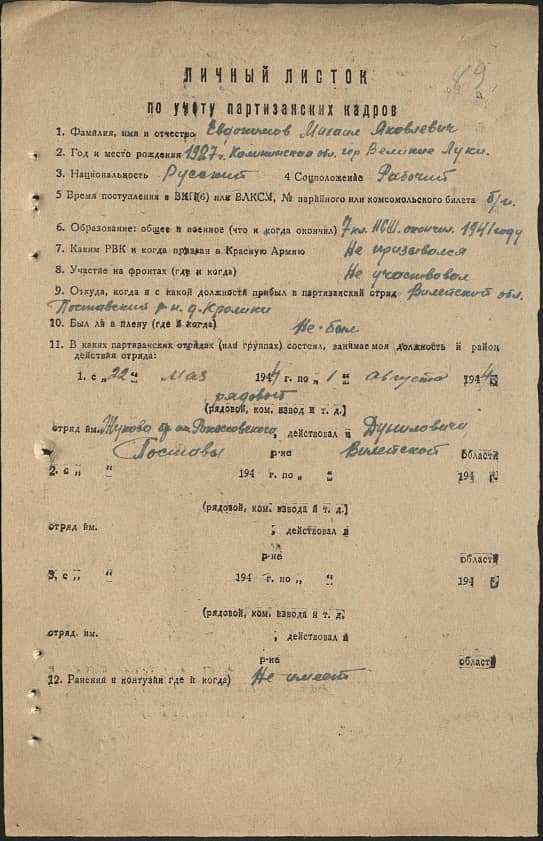 89
ЛИЧНЫЙ ЛИСТОК
по учёту партизанских кадров
1. Фамилия, имя и отчество Евдокимов Михаил Яковлевич
2. Год и место рождения 1927 г. Калининская обл. гор Великие Луки.
3. Национальность Русский 4 Соцположение Рабочий
5 Время поступления в ВКП(б) или ВЛКСМ, № парийного или комсомольского билета б/п.
6. Образование: общее и военное (что и когда окончил) 7 кл. НСШ. окончил. 1941 году
7. Каким РВК и когда призван в Красную Армию Не призывался
8. Участие на фронтах (где и когда) Не участвовал
9. Откуда, когда и с какой должности прибыл в партизанский отряд Вилейской обл.
Поставский р-н д. Кролики
10. Был ли в плену (где и когда) Не был
11. В каких партизанских отрядах (или группах) состоял, занимаемоя должность и район
действия отряда:
1. с „22“ мая 1944 г. по „1“ августа 1944 г.
рядовой
(рядовой, ком. взвод и т. д.)
отряд им. Жукова бр. им. Рокоссовского, действовал в Дуниловичи,
Поставы р-не Вилейской области
2. с „ “ 194 г. по „ “ 194 г.
(рядовой, ком. взвода и т. д.)
отряд им. , действовал в
р-не области
3. с „ “ 194 г. по „ “ 194 г.
(рядовой, ком. взвода и т. д.
отряд. им. , действовал в
р-не области
12. Ранения и контузии где и когда) Не имеет